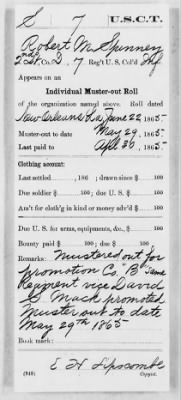 S 7 U.S.C.T.
Robert W. Spinney
2nd Lt. Co. D, 7 Reg't U.S. Col'd Inf
Appears on an
Individual Muster-out Roll
of the organization named above. Roll dated
New Orleans La June 22, 1865.
Muster-out to date May 29, 1865.
Last paid to Apl 30, 1865.
Clothing account:
Last settled, 186 ; drawn since $ 100
Due soldier $ 100; due U. S. $ 100
Am't for cloth'g in kind or money adv'd $ 100
Due U. S. for arms, equipments, &c., $ 100
Bounty paid $ 100; due $ 100
Remarks: Mustered out for
promotion Co. "B" Same
Regiment vice David
G. Mack promoted
Muster out to date
May 29th 1865
Book mark:
E H Lipscombe
(940) Copyist.